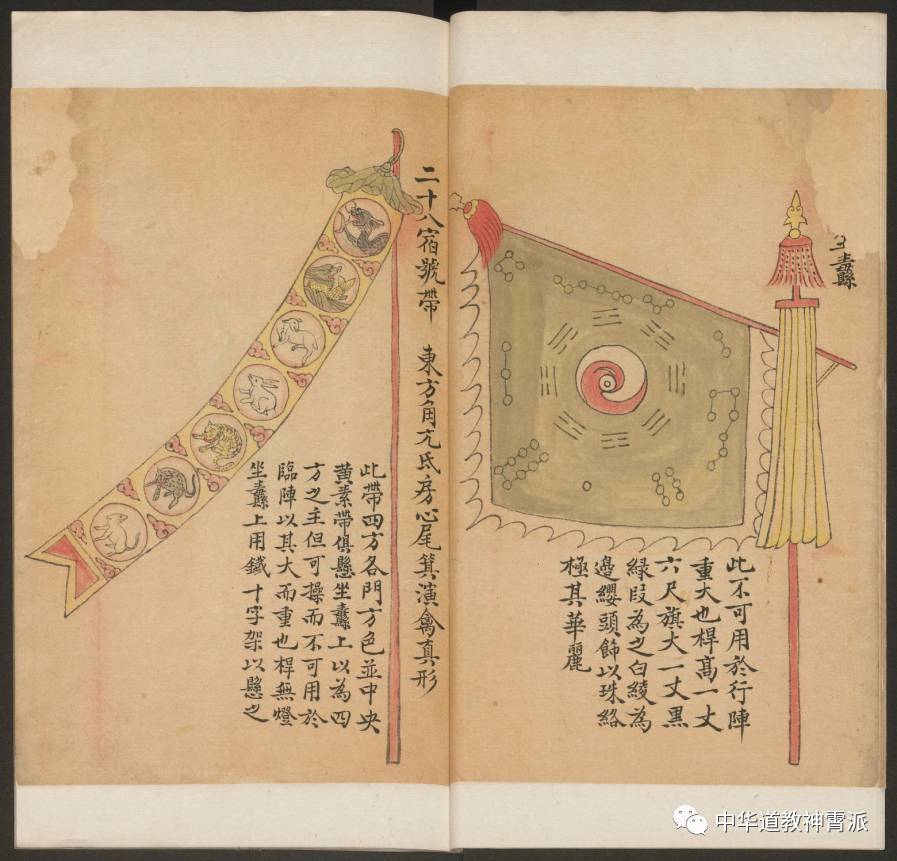 纛
此不可用於行陣
重大也桿高一丈
六尺旗大一丈黑
緑段為之白綾為
邊纓頭飾以珠絡
極其華麗
二十八宿號帶 東方角亢氐房心尾箕演禽真形
此帶四方各門方色並中央
黃素帶俱懸坐纛上以為四
方之主但可操而不可用於
臨陣以其大而重也桿無燈
坐纛上用鐵十字架以懸之
中华道教神霄派